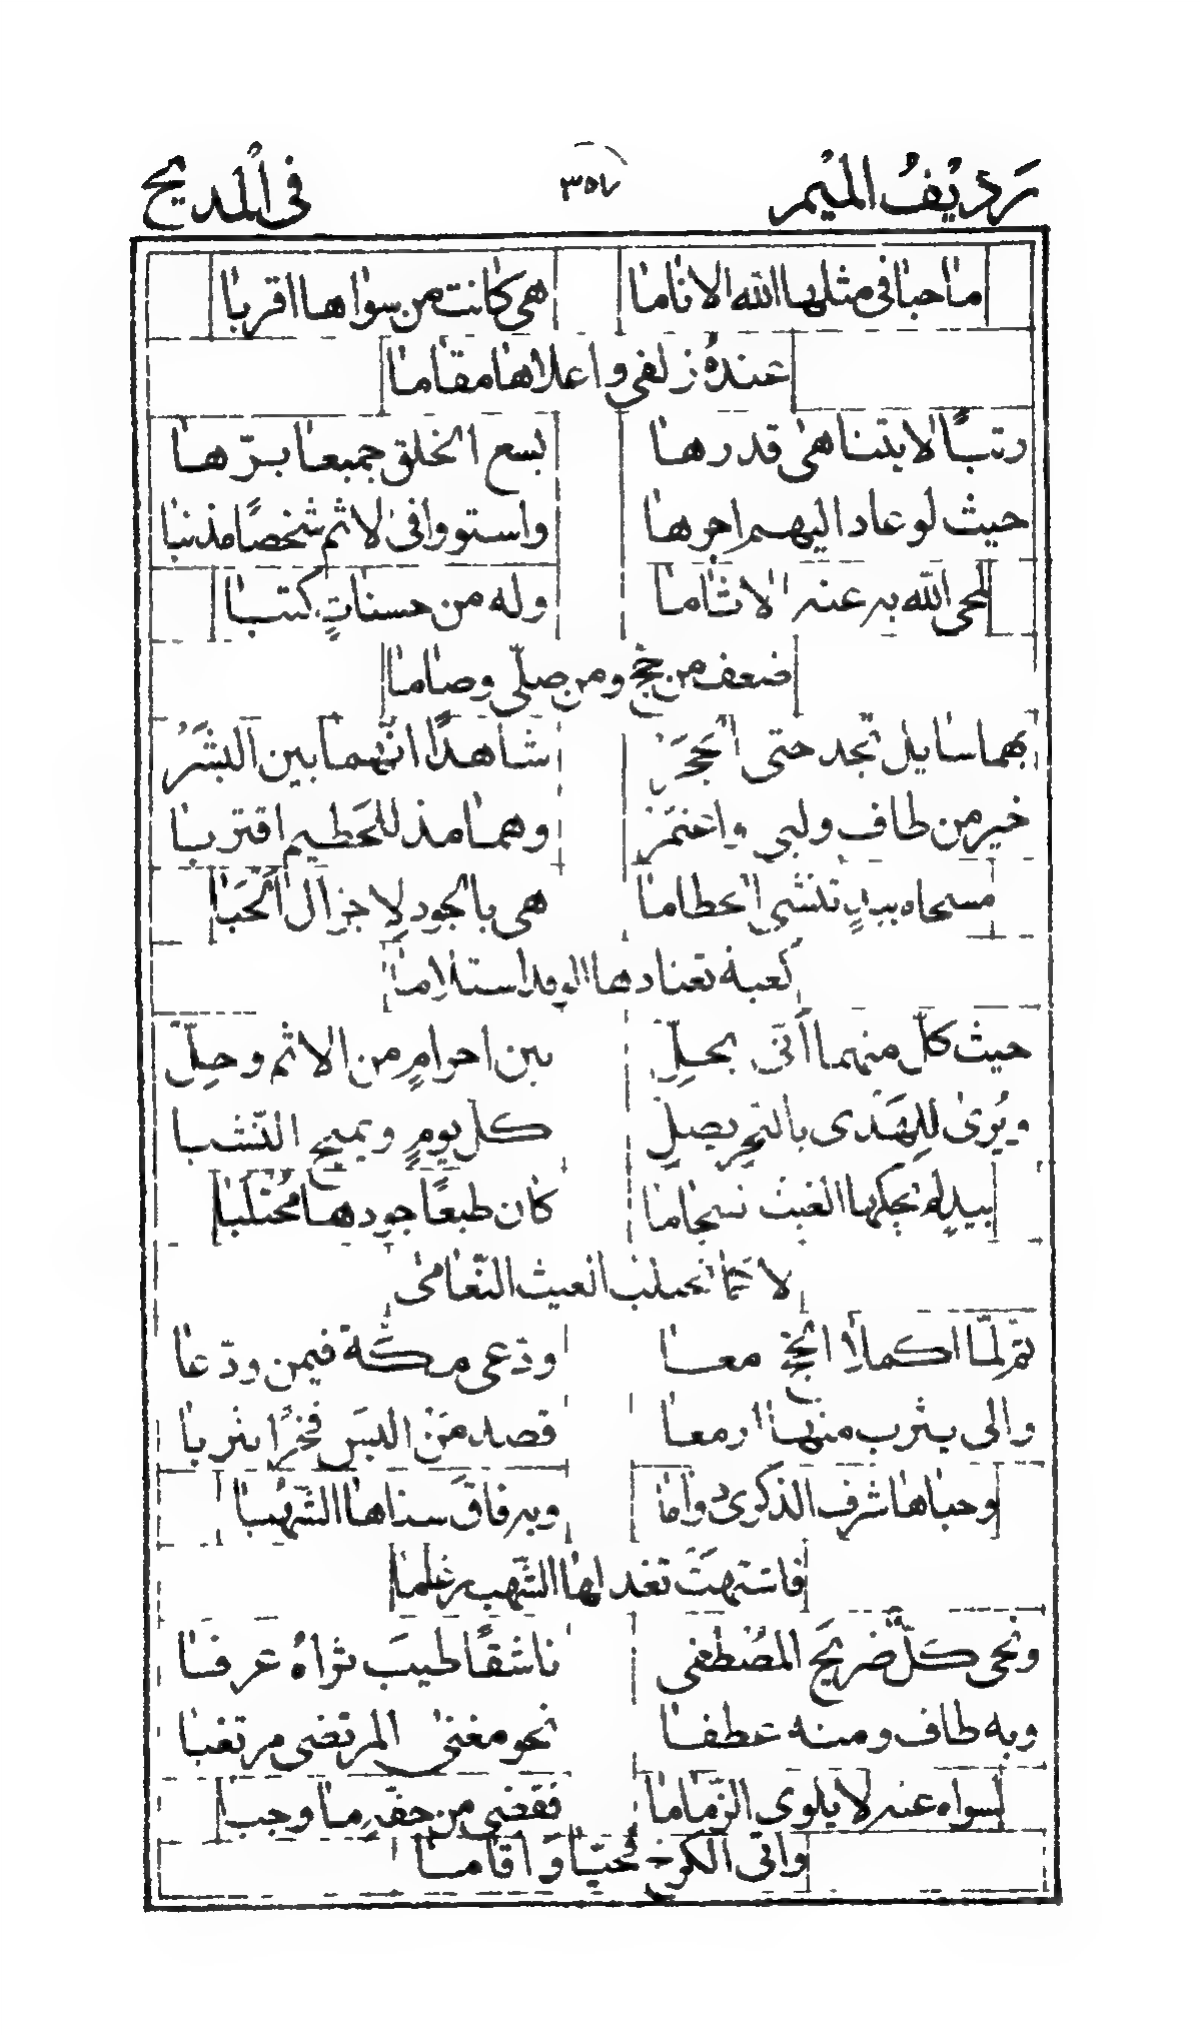 رَدِيْفُ الْمِيْمِ ٣٥٧ فِى الْمَدِيح
مَا حبَا فى مثلها الله الانامَا هى كانت من سواها اقربا
عندهُ زلفى واعلاها مقامَا
رتبًا لا يتناهى قدرها يسع الخلق جميعا برّها
حيث لو عاد اليهم اجرها واستووا فى الاثم شخصًا مذنبا
لمحى الله به عنه الاثاما وله من حسناتٍ كتبا
ضعف من حج ومن صلّى وصاما
بهما سايل تجد حتى الحَجَرْ شاهدًا انّهما بين البشَرْ
خير من طاف ولبى واعتمَرْ وهما مذ للحَطيم اقتربا
مسحاه بيدٍ تنشى الحطاما هى بالجود لاجزال الحَبَا
كعبة تعتادها الوفد استلاما
حيث كلّ منهما أتى بحلِّ بين احرامٍ من الاثم وحِلّ
ويُرى للهَدى بالنحر يصلّ كل يومٍ ويميح النّشبا
بيدٍ لم يحكها الغيث انسجاما كان طبعًا جودها مجتلبا
لا كما تجتلب الغيث النّعامى
ثمّ لمّا اكملا الحج معا ودّعى مكّة فيمن ودّعا
والى يثرب منها ازمعا قصد مَنْ البسَ فخرًا يثربا
وحباها شرف الذكرى دواما وبه فاقَ سناها الشّهُبا
فاشتهَتْ تغدو لها الشّهب رغاما
ونحى كلٌّ ضَريحَ المصْطفى ناشقًا طيبَ ثراهُ عرفا
وبه طاف ومنه عطفا نحو مغنى المرتضى مرتغبا
لسواه عنه لا يلوى الزّماما فقضى من حقّهِ ما وجبا
واتى الكرخ فحيّا وَاقامَا